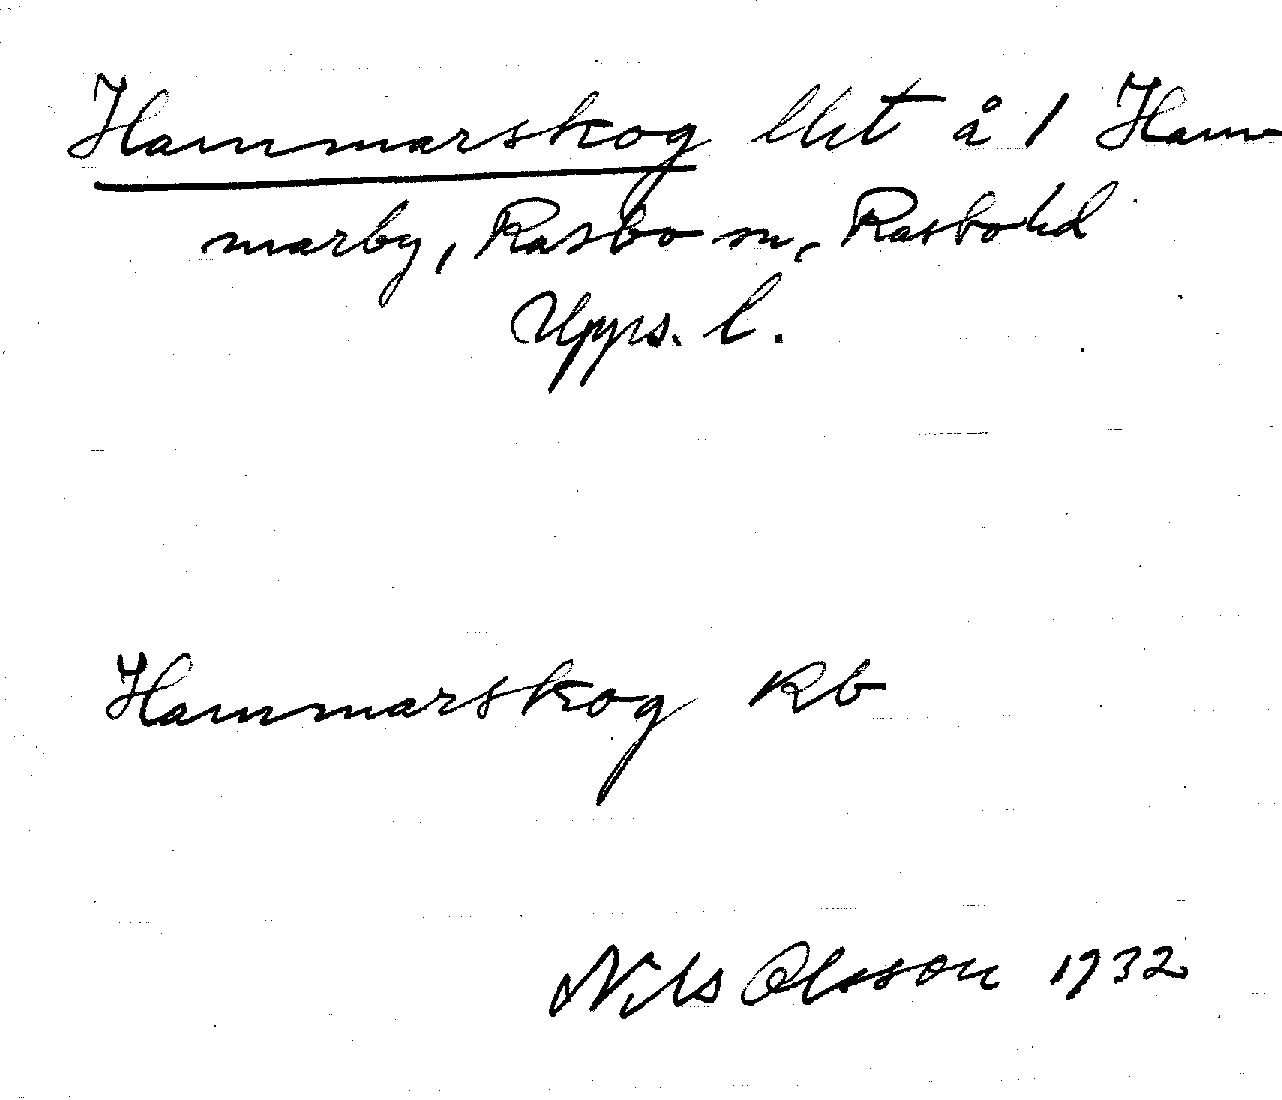 Hammarskog llet å 1 Ham
marby, Rasbo sn, Rasbo hd
Upps. l.
Hammarskog Rb
Nils Olsson 1932